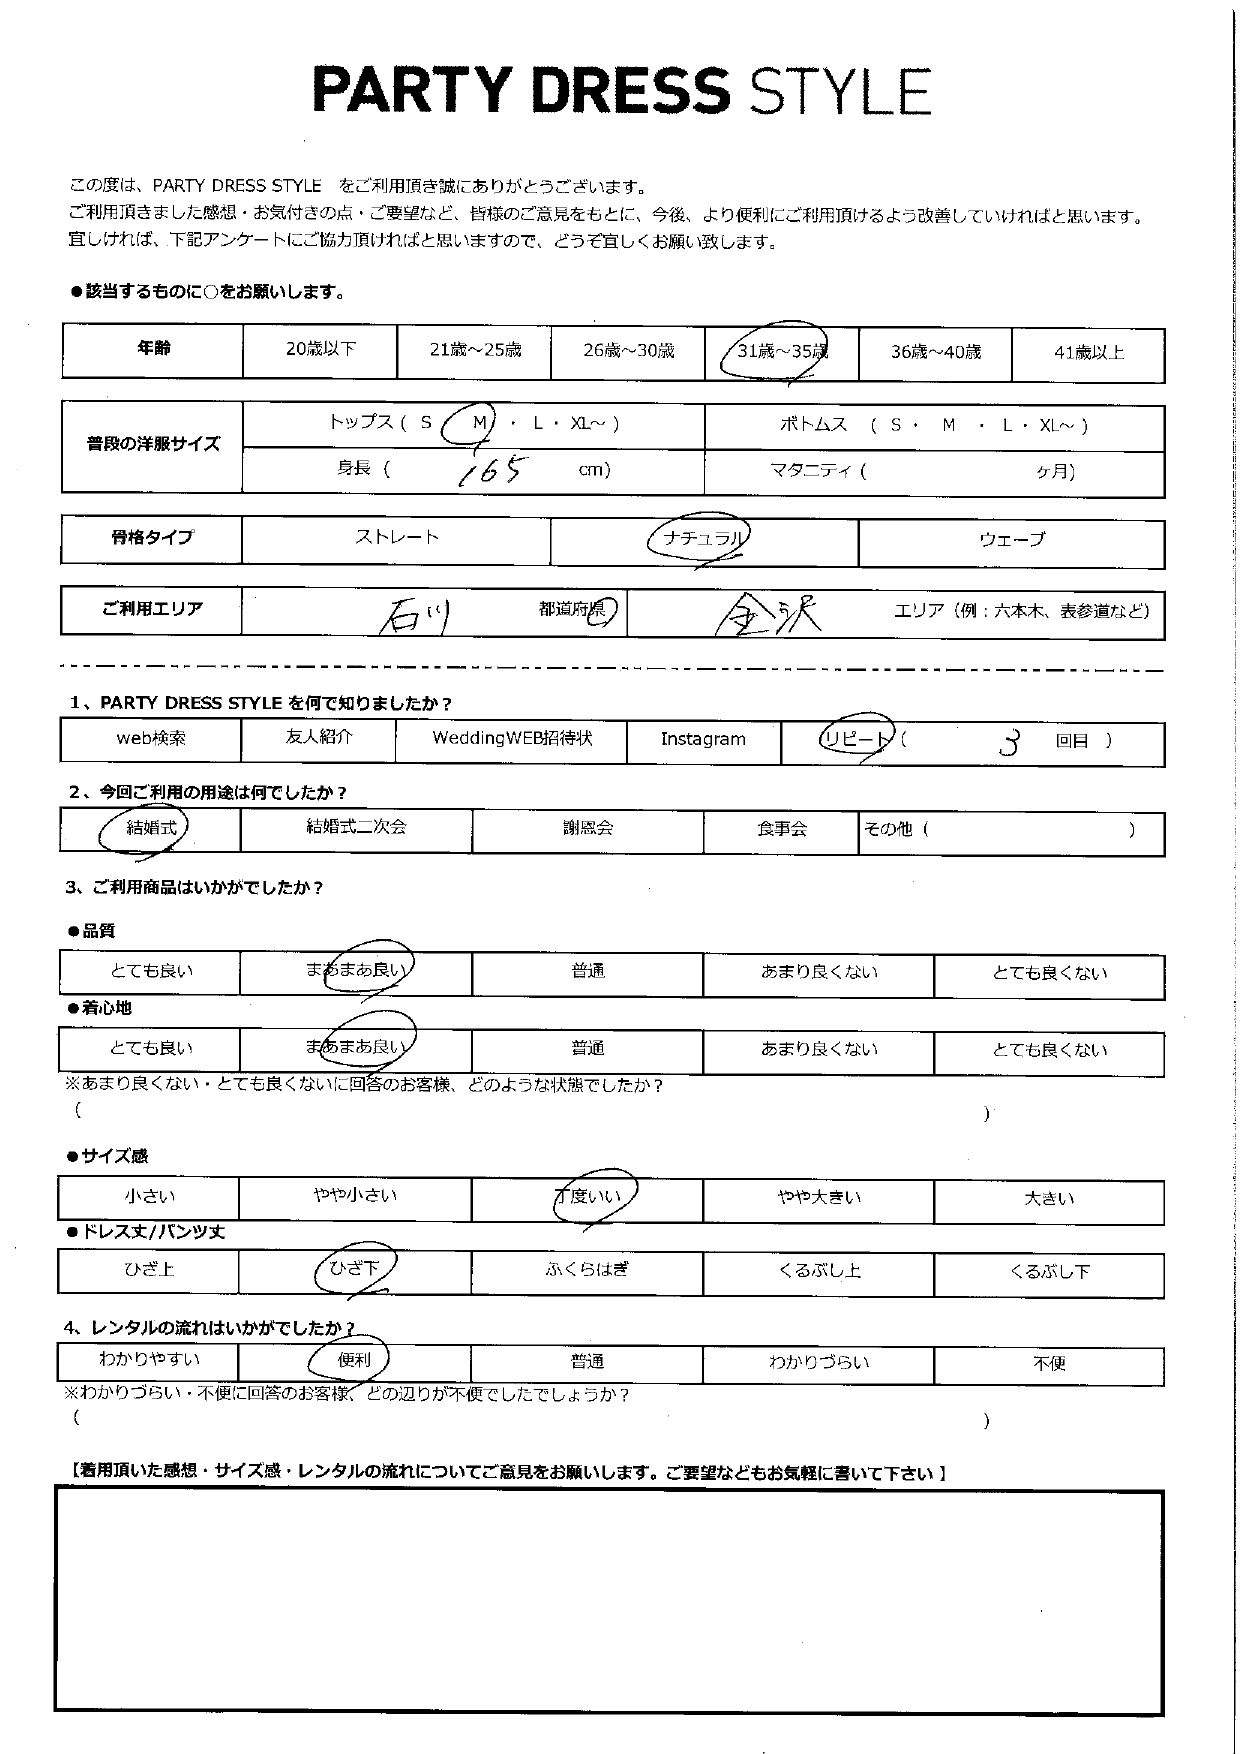 PARTY DRESS STYLE
この度は、PARTY DRESS STYLE　をご利用頂き誠にありがとうございます。
ご利用頂きました感想・お気付きの点・ご要望など、皆様のご意見をもとに、今後、より便利にご利用頂けるよう改善していければと思います。
宜しければ、下記アンケートにご協力頂ければと思いますので、どうぞ宜しくお願い致します。
●該当するものに○をお願いします。
年齢 20歳以下 21歳～25歳 26歳～30歳 31歳～35歳 36歳～40歳 41歳以上
普段の洋服サイズ トップス ( S M ・ L ・ XL～ ) ボトムス ( S ・ M ・ L ・ XL～ )
身長 ( 165 cm) マタニティ ( ヶ月)
骨格タイプ ストレート ナチュラル ウェーブ
ご利用エリア 石川 都道府県 金沢 エリア（例：六本木、表参道など）
1、PARTY DRESS STYLE を何で知りましたか？
web検索 友人紹介 WeddingWEB招待状 Instagram リピート ( 3 回目 )
2、今回ご利用の用途は何でしたか？
結婚式 結婚式二次会 謝恩会 食事会 その他 ( )
3、ご利用商品はいかがでしたか？
●品質
とても良い まあまあ良い 普通 あまり良くない とても良くない
●着心地
とても良い まあまあ良い 普通 あまり良くない とても良くない
※あまり良くない・とても良くないに回答のお客様、どのような状態でしたか？
( )
●サイズ感
小さい やや小さい 丁度いい やや大きい 大きい
●ドレス丈/パンツ丈
ひざ上 ひざ下 ふくらはぎ くるぶし上 くるぶし下
4、レンタルの流れはいかがでしたか？
わかりやすい 便利 普通 わかりづらい 不便
※わかりづらい・不便に回答のお客様、どの辺りが不便でしたでしょうか？
( )
【着用頂いた感想・サイズ感・レンタルの流れについてご意見をお願いします。ご要望などもお気軽に書いて下さい】